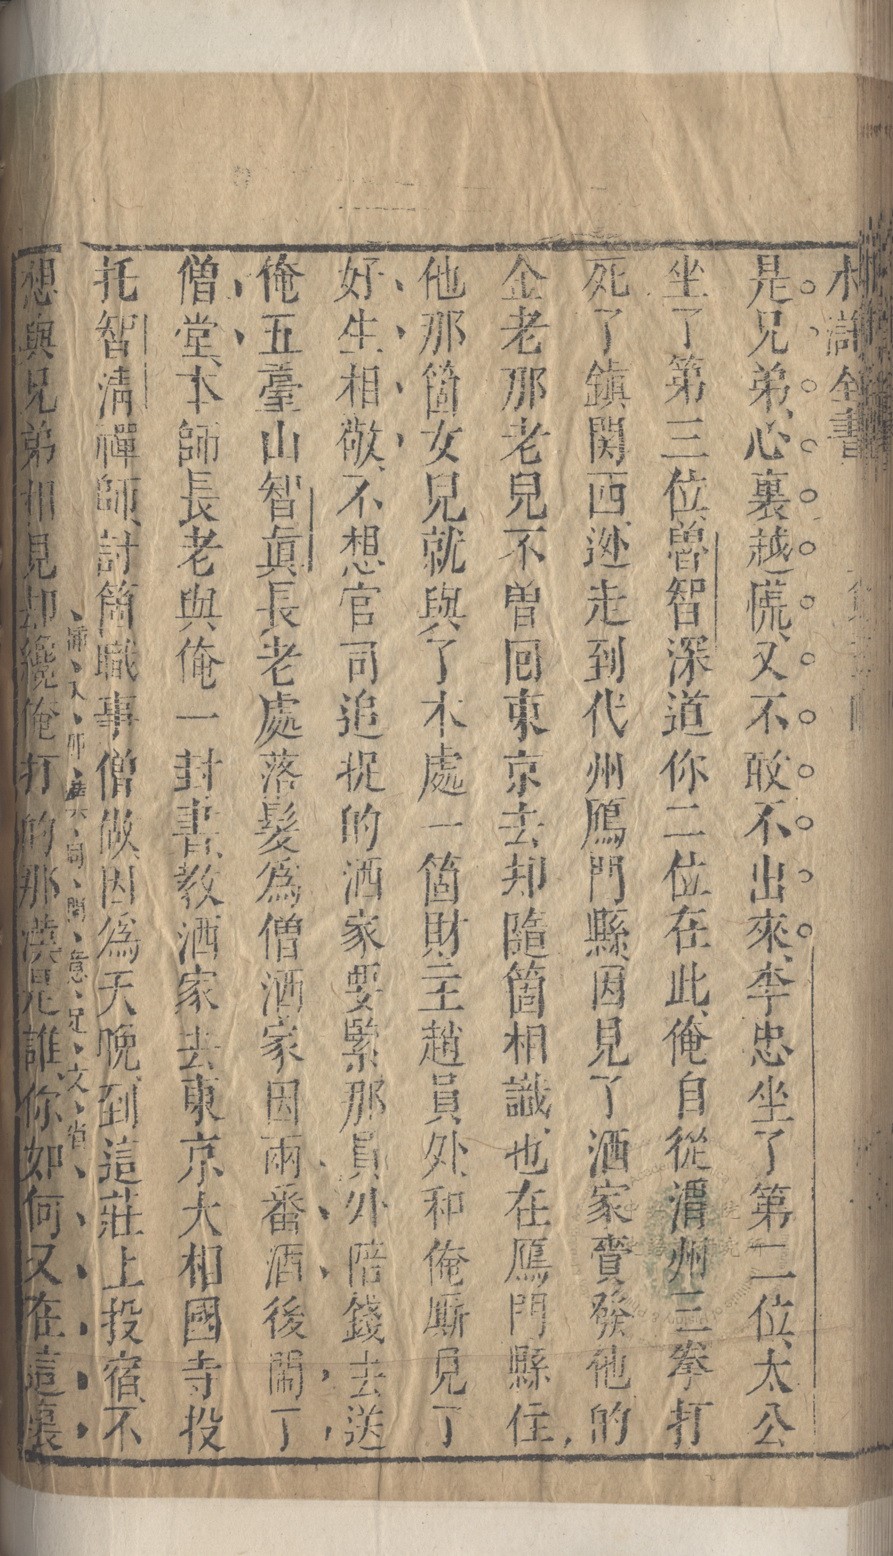 水滸全書
是兄弟、心裏越慌、又不敢不出來、李忠坐了第二位、太公
坐了第三位、魯智深道你二位在此、俺自從渭州三拳打
死了鎮関西、逃走到代州鴈門縣、因見了洒家賫發他的
金老那老兒不曾回東京去却隨箇相識、也在鴈門縣住、
他那箇女兒就與了本處一箇財主趙員外、和俺厮見了
好生相敬、不想官司追捉的洒家要緊那員外陪錢去送
俺五臺山智眞長老處落髮爲僧洒家因兩番酒後閙了
僧堂、本師長老與俺一封書、教洒家去東京大相國寺投
托智清禪師、討箇職事僧做、因爲天晚、到這莊上投宿、不
想與兄弟相見却纔俺打的那漢是誰、你如何又在這裏